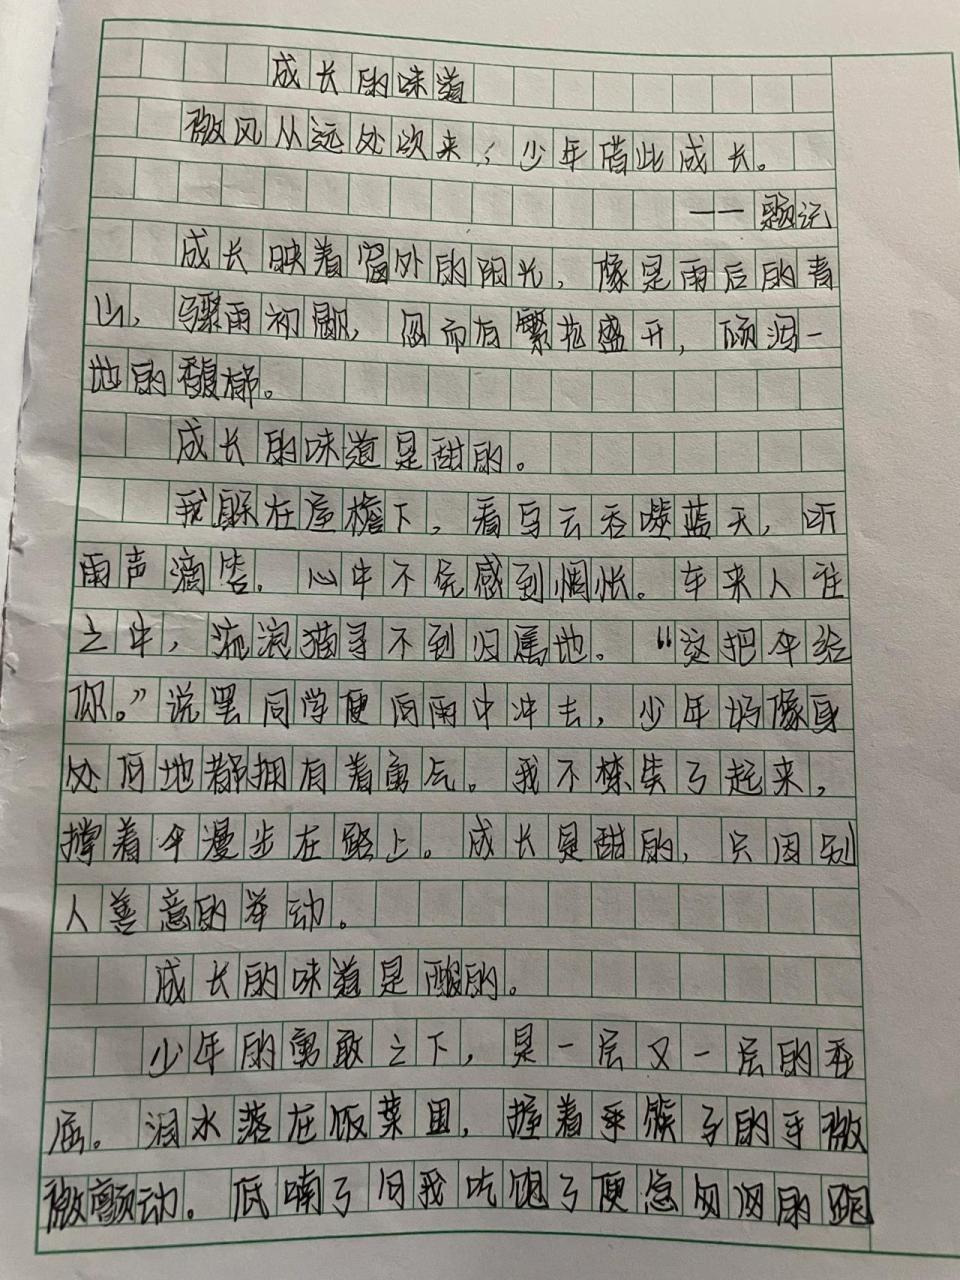 成长的味道
微风从远处吹来,少年借此成长。
——题记
成长映着窗外的阳光,像是雨后的青
山,骤雨初歇,忽而有繁花盛开,倾泻一
地的馥郁。
成长的味道是甜的。
我躲在屋檐下,看乌云吞噬蓝天,听
雨声滴答。心中不免感到惆怅。车来人往
之中,流浪猫寻不到归属地。“这把伞给
你。”说罢同学便向雨中冲去,少年好像身
处何地都拥有着勇气。我不禁笑了起来,
撑着伞漫步在路上。成长是甜的,只因别
人善意的举动。
成长的味道是酸的。
少年的勇敢之下,是一层又一层的委
屈。泪水落在饭菜里,握着筷子的手微
微颤动。低喃了句我吃饱了便急匆匆的跑